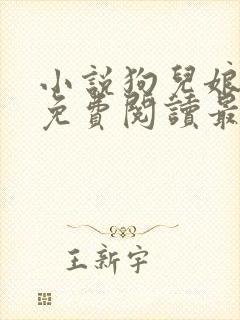 小說狗兒娘
免費閱讀最
王新宇